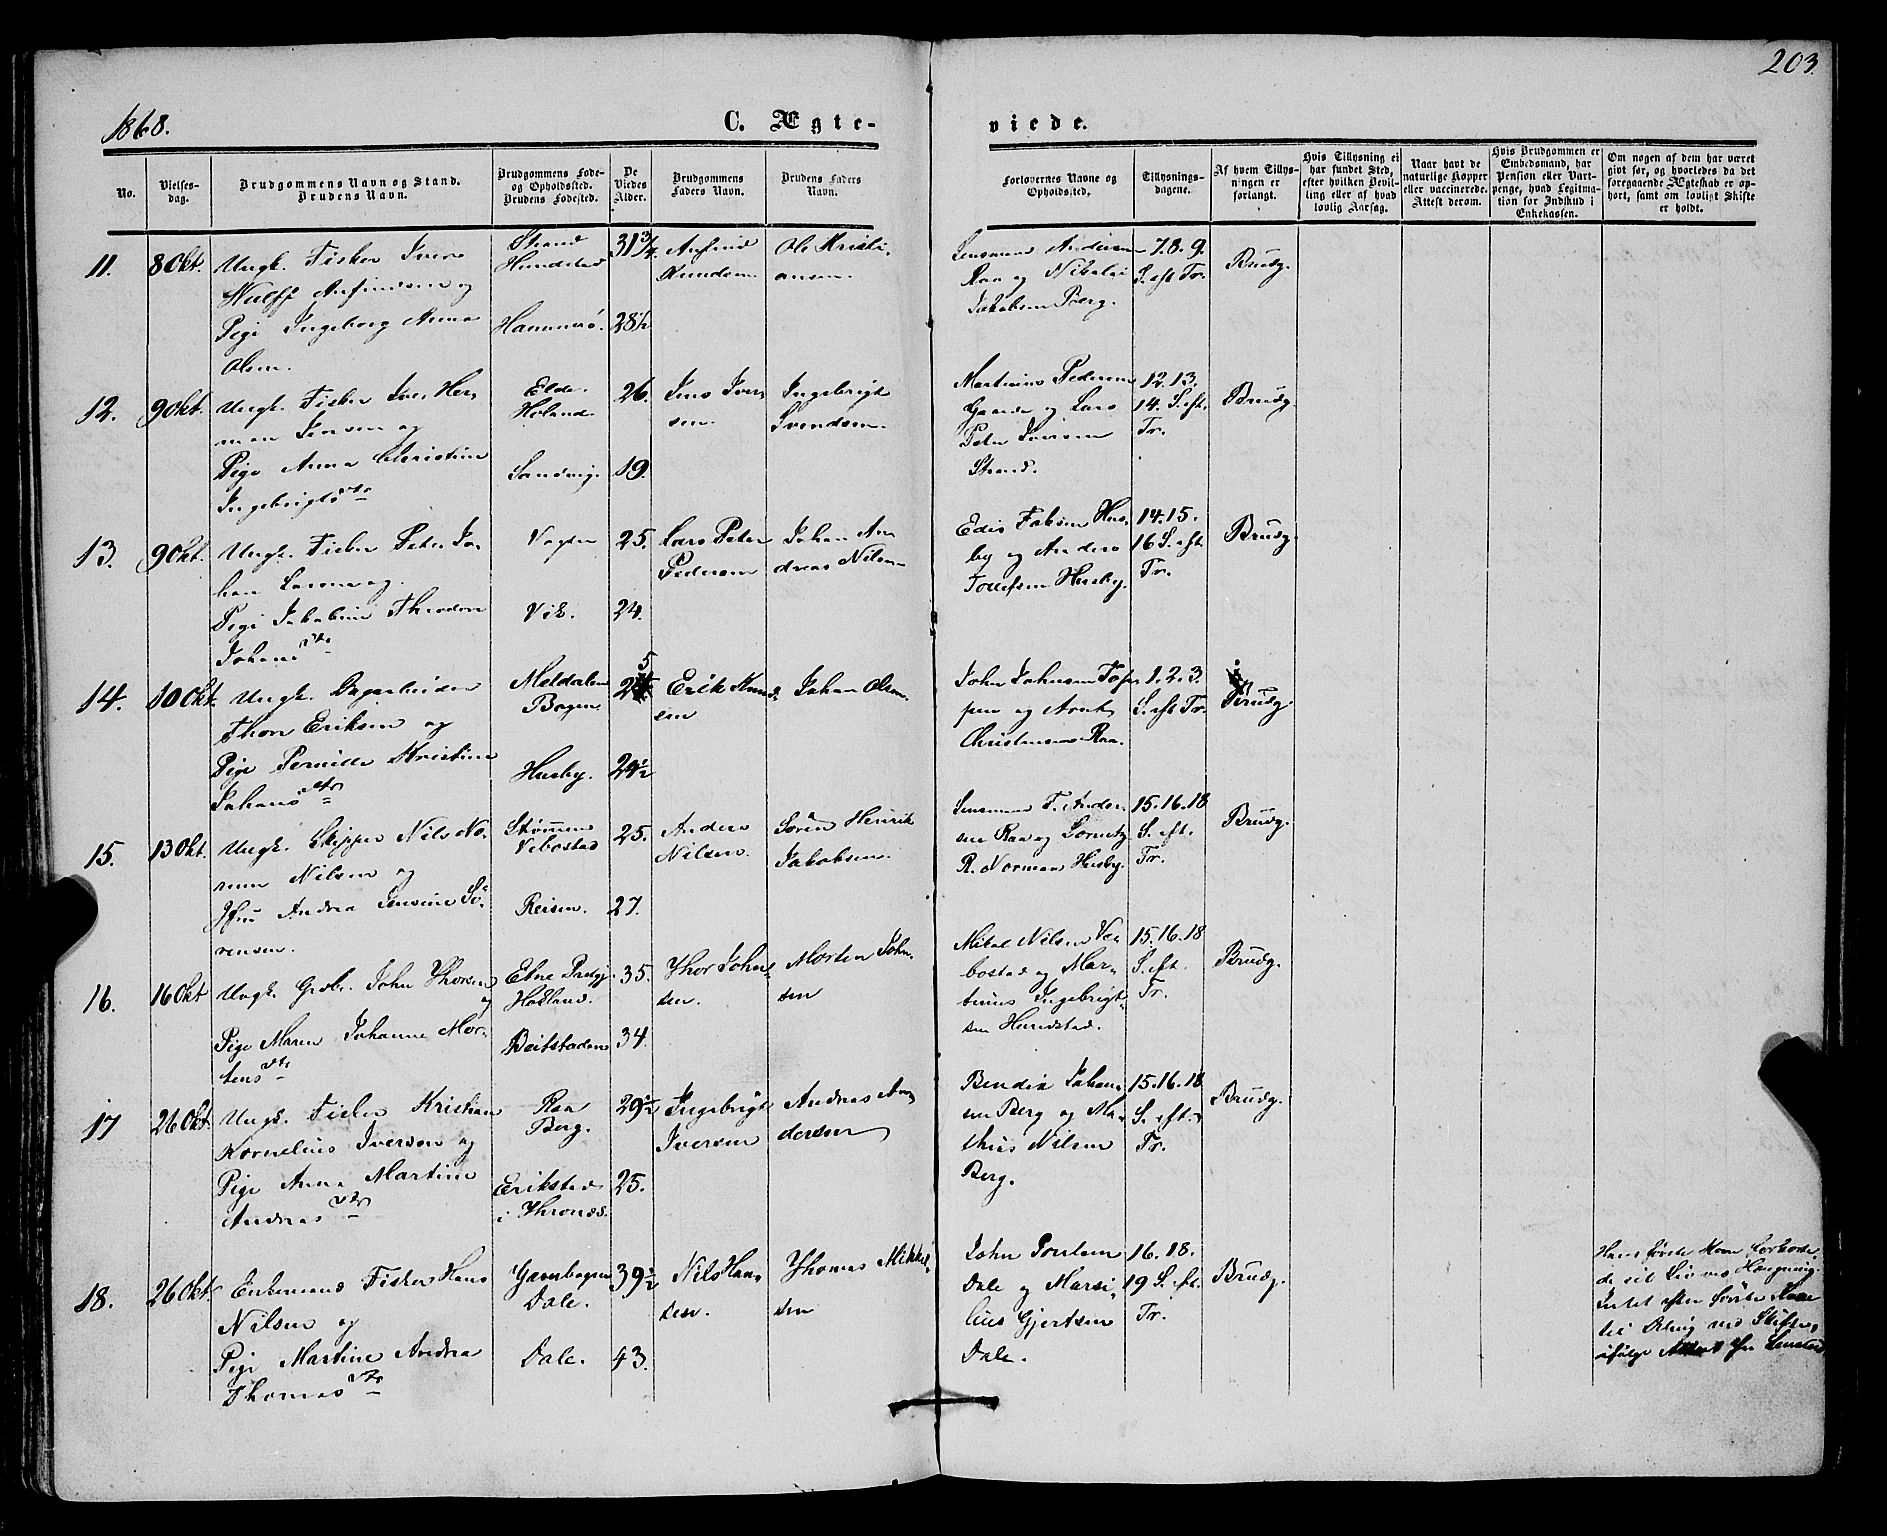 203.
1868.
C. Ægte-
viede.
No.
Vielses-
dag.
Brudgommens Navn og Stand.
Brudens Navn.
Brudgommens Føde-
og Opholdsted.
Brudens Fødested.
De
Viedes
Alder.
Brudgommens
Faders Navn.
Brudens Faders
Navn.
Forlovernes Navne og
Opholdsted.
Tillysnings-
dagene.
Af hvem Tillys-
ningen er
forlangt.
Hvis Tillysning ei
har fundet Sted,
efter hvilken Bevil-
ling eller af hvad
lovlig Aarsag.
Naar havt de
naturlige Kopper
eller vaccinerede.
Attest derom.
Hvis Brudgommen er
Embedsmand, har
Pension eller Vart-
penge, hvad Legitima-
tion for Indskud i
Enkekassen.
Om nogen af dem har været
gift før, og hvorledes da det
foregaaende Ægteskab er op-
hørt, samt om lovligt Skifte
er holdt.
11.
8 Okt.
Ungk. Fisker Iver
Wulff Arfindsen og
Pige Ingeborg Anna
Olsen.
Strand
Hundstad
Hammerö.
31 3/4
28 1/2
Arfind
Knudsen
Ole Kristi-
ansen
Lensmand Andersen
Raa og Nikolai
Jakobsen Berg.
7. 8. 9.
S. eft Tr.
Brudg.
12.
9 Okt.
Ungk. Fisker Iver Her-
man Jensen og
Pige Anna Christine
Ingebrigtsdtr
Elde.
Holand
Sandvig.
26.
19.
Jens Iver-
sen.
Ingebrigt
Svendsen.
Martinus Pedersen
Gaarde og Lars
Peter Iversen
Strand.
12. 13.
14. S. eft.
Tr.
Brudg.
13.
9 Okt.
Ungk. Fisker Peter Jo-
han Larsen og
Pige Jakobine Theodora
Johansdtr
Vogten
Vik.
25.
24.
Lars Peter
Pedersen
Johan An-
dreas Nilsen
Edis Falksen Hus-
by og Anders
Tollefsen Husby.
14. 15.
16 S. eft
Tr.
Brudg.
14.
10 Okt.
Ungk. Dagarbeider
Thore Eriksen og
Pige Pernille Kristine
Johansdtr
Meldalen
Bogen.
Husby.
25
24 1/2
Erik Knud-
sen
Johan Olsen.
John Johnsen
og Arnt
Christensen Raa.
1. 2. 3.
S. eft Tr.
Brudg.
15.
13 Okt.
Ungk. Skipper Nils No-
rum Nilsen og
Jfru Andrea Lensine Sö-
rensen.
Strömmen
Vebostad
Reisen.
25.
27.
Anders
Nilsen.
Sören Henrik
Jakobsen.
Lensmand F. Ander-
sen Raa og
R. Norman Husby.
15. 16. 18
S. eft.
Tr.
Brudg.
16.
16 Okt
Ungk. John Thorsen
og
Pige Maren Johanna Mor-
tensdtr
Etne Prestgj.
Holand.
Beitstaden
35.
34.
Thor John-
sen.
Morten John-
sen
Mikal Nilsen Ve-
bostad og Mar-
tinus Ingebrigt-
sen Hundstad.
15. 16. 18
S. eft.
Tr.
Brudg.
17
26 Okt.
Ungk. Fisker Kristian
Kornelius Iversen og
Pige Anna Martine
Andreasdtr
Raa
Berg.
Erikstad
i Thronæs.
29 1/2
25.
Ingebrigt
Iversen
Andreas An-
dersen
Bendix Johan-
sen Berg og Ma-
thias Nilsen
Berg.
15. 16. 18
S. eft.
Tr.
Brudg.
18.
26 Okt.
Enkemand Fisker Hans
Nilsen og
Pige Martine Andrea
Thomasdtr
Gavnbogen
Dale.
Dale.
39 1/2
43.
Nils Han-
sen.
Thomas Mikkel-
sen
John
Dale og Marsi-
lius Gjertsen
Dale.
16. 18.
19 S. eft.
Tr.
Brudg.
Hans første Kone forkorte-
de sit Liv ved Hængning.
Intet efter første Kone
til Deling ved Skifte,
ifølge Attest fra Lensmd